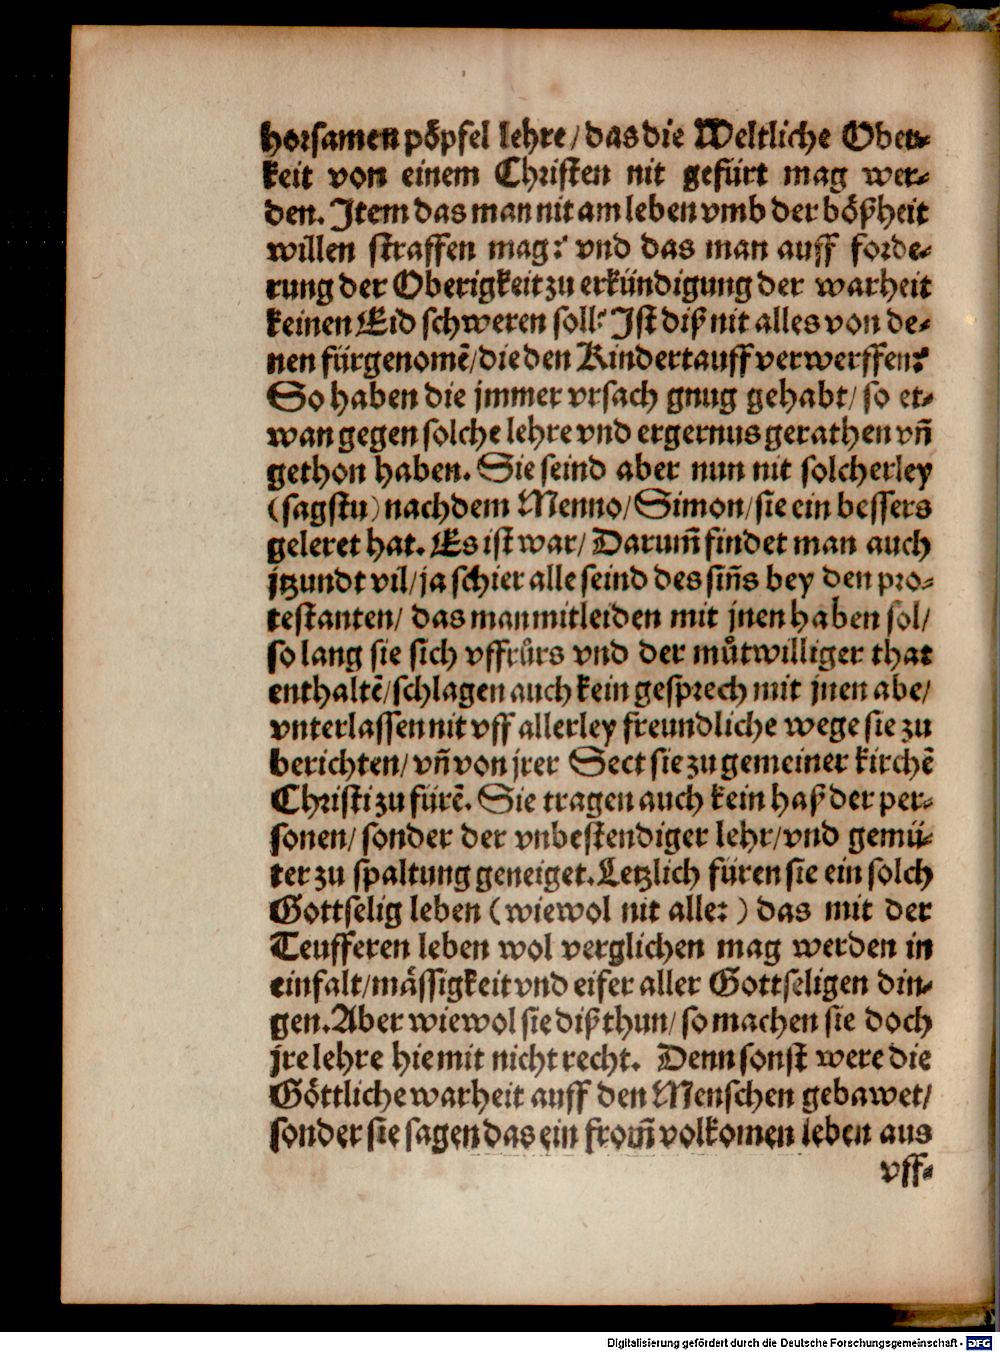 horsamen pöpfel lehre/ das die Weltliche Ober-
keit von einem Christen nit gefürt mag wer-
den. Item das man nit am leben vmb der bößheit
willen straffen mag? vnd das man auff forde-
rung der Oberigkeit zu erkündigung der warheit
keinen Eid schweren soll? Ist diß nit alles von de-
nen fürgenomē/ die den Kindertauff verwerffen?
So haben die jmmer vrsach gnug gehabt/ so et-
wan gegen solche lehre vnd ergernus gerathen vñ
gethon haben. Sie seind aber nun nit solcherley
(sagstu) nachdem Menno/ Simon/ sie ein bessers
geleret hat. Es ist war/ Darum̃ findet man auch
jtzundt vil/ ja schier alle seind des siñs bey den pro-
testanten/ das man mitleiden mit jnen haben sol/
so lang sie sich vffrůrs vnd der můtwilliger that
enthaltē/ schlagen auch kein gesprech mit jnen abe/
vnterlassen nit vff allerley freundliche wege sie zu
berichten/ vñ von jrer Sect sie zu gemeiner kirchē
Christi zu fürē. Sie tragen auch kein haß der per-
sonen/ sonder der vnbestendiger lehr/ vnd gemü-
ter zu spaltung geneiget. Letzlich füren sie ein solch
Gottselig leben (wiewol nit alle:) das mit der
Teufferen leben wol verglichen mag werden in
einfalt/ mässigkeit vnd eifer aller Gottseligen din-
gen. Aber wiewol sie diß thun/ so machen sie doch
jre lehre hiemit nicht recht. Denn sonst were die
Göttliche warheit auff den Menschen gebawet/
sonder sie sagen das ein from̃ volkomen leben aus
vff-
Digitalisierung gefördert durch die Deutsche Forschungsgemeinschaft - DFG